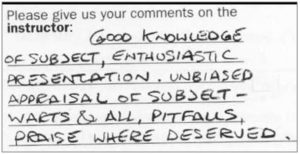 Please give us your comments on the
instructor: GOOD KNOWLEDGE
OF SUBJECT, ENTHUSIASTIC
PRESENTATION. UNBIASED
APPRAISAL OF SUBJECT -
WARTS & ALL, PITFALLS,
PRAISE WHERE DESERVED.